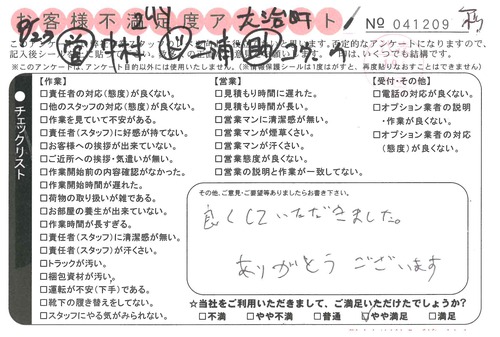 お客様不満足度アンケート!
No 041209
8/23 大治町
営 中村
このアンケートは
記入後シール
※このアンケートは、アンケート目的以外には使用いたしません。(※情報保護シールは1度はがすと、再度貼りなおすことはできません)
チェックリスト
【作業】
□責任者の対応(態度)が良くない。
□他のスタッフの対応(態度)が良くない。
□作業を見ていて不安がある。
□責任者(スタッフ)に好感が持てない。
□お客様への挨拶が出来ていない。
□ご近所への挨拶・気遣いが無い。
□作業開始前の内容確認がなかった。
□作業開始時間が遅れた。
□荷物の取り扱いが雑である。
□お部屋の養生が出来ていない。
□作業時間が長すぎる。
□責任者(スタッフ)に清潔感が無い。
□責任者(スタッフ)が汗くさい。
□トラックが汚い。
□梱包資材が汚い。
□運転が不安(下手)である。
□靴下の履き替えをしてない。
□スタッフにやる気がみられない。
【営業】
□見積もり時間に遅れた。
□見積もり時間が長い。
□営業マンに清潔感が無い。
□営業マンが煙草くさい。
□営業マンが汗くさい。
□営業態度が良くない。
□営業の説明と作業が一致してない。
【受付・その他】
□電話の対応が良くない。
□オプション業者の説明
・作業が良くない。
□オプション業者の対応
(態度)が良くない。
その他、ご意見・ご要望等ありましたらお書き下さい。
良くしていただきました。
ありがとうございます
☆当社をご利用いただきまして、ご満足いただけたでしょうか?
□不満 □やや不満 □普通 □やや満足 □満足